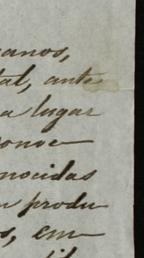 anos,
tal, ante
a lugar
onve
nocidas
produ
os, em